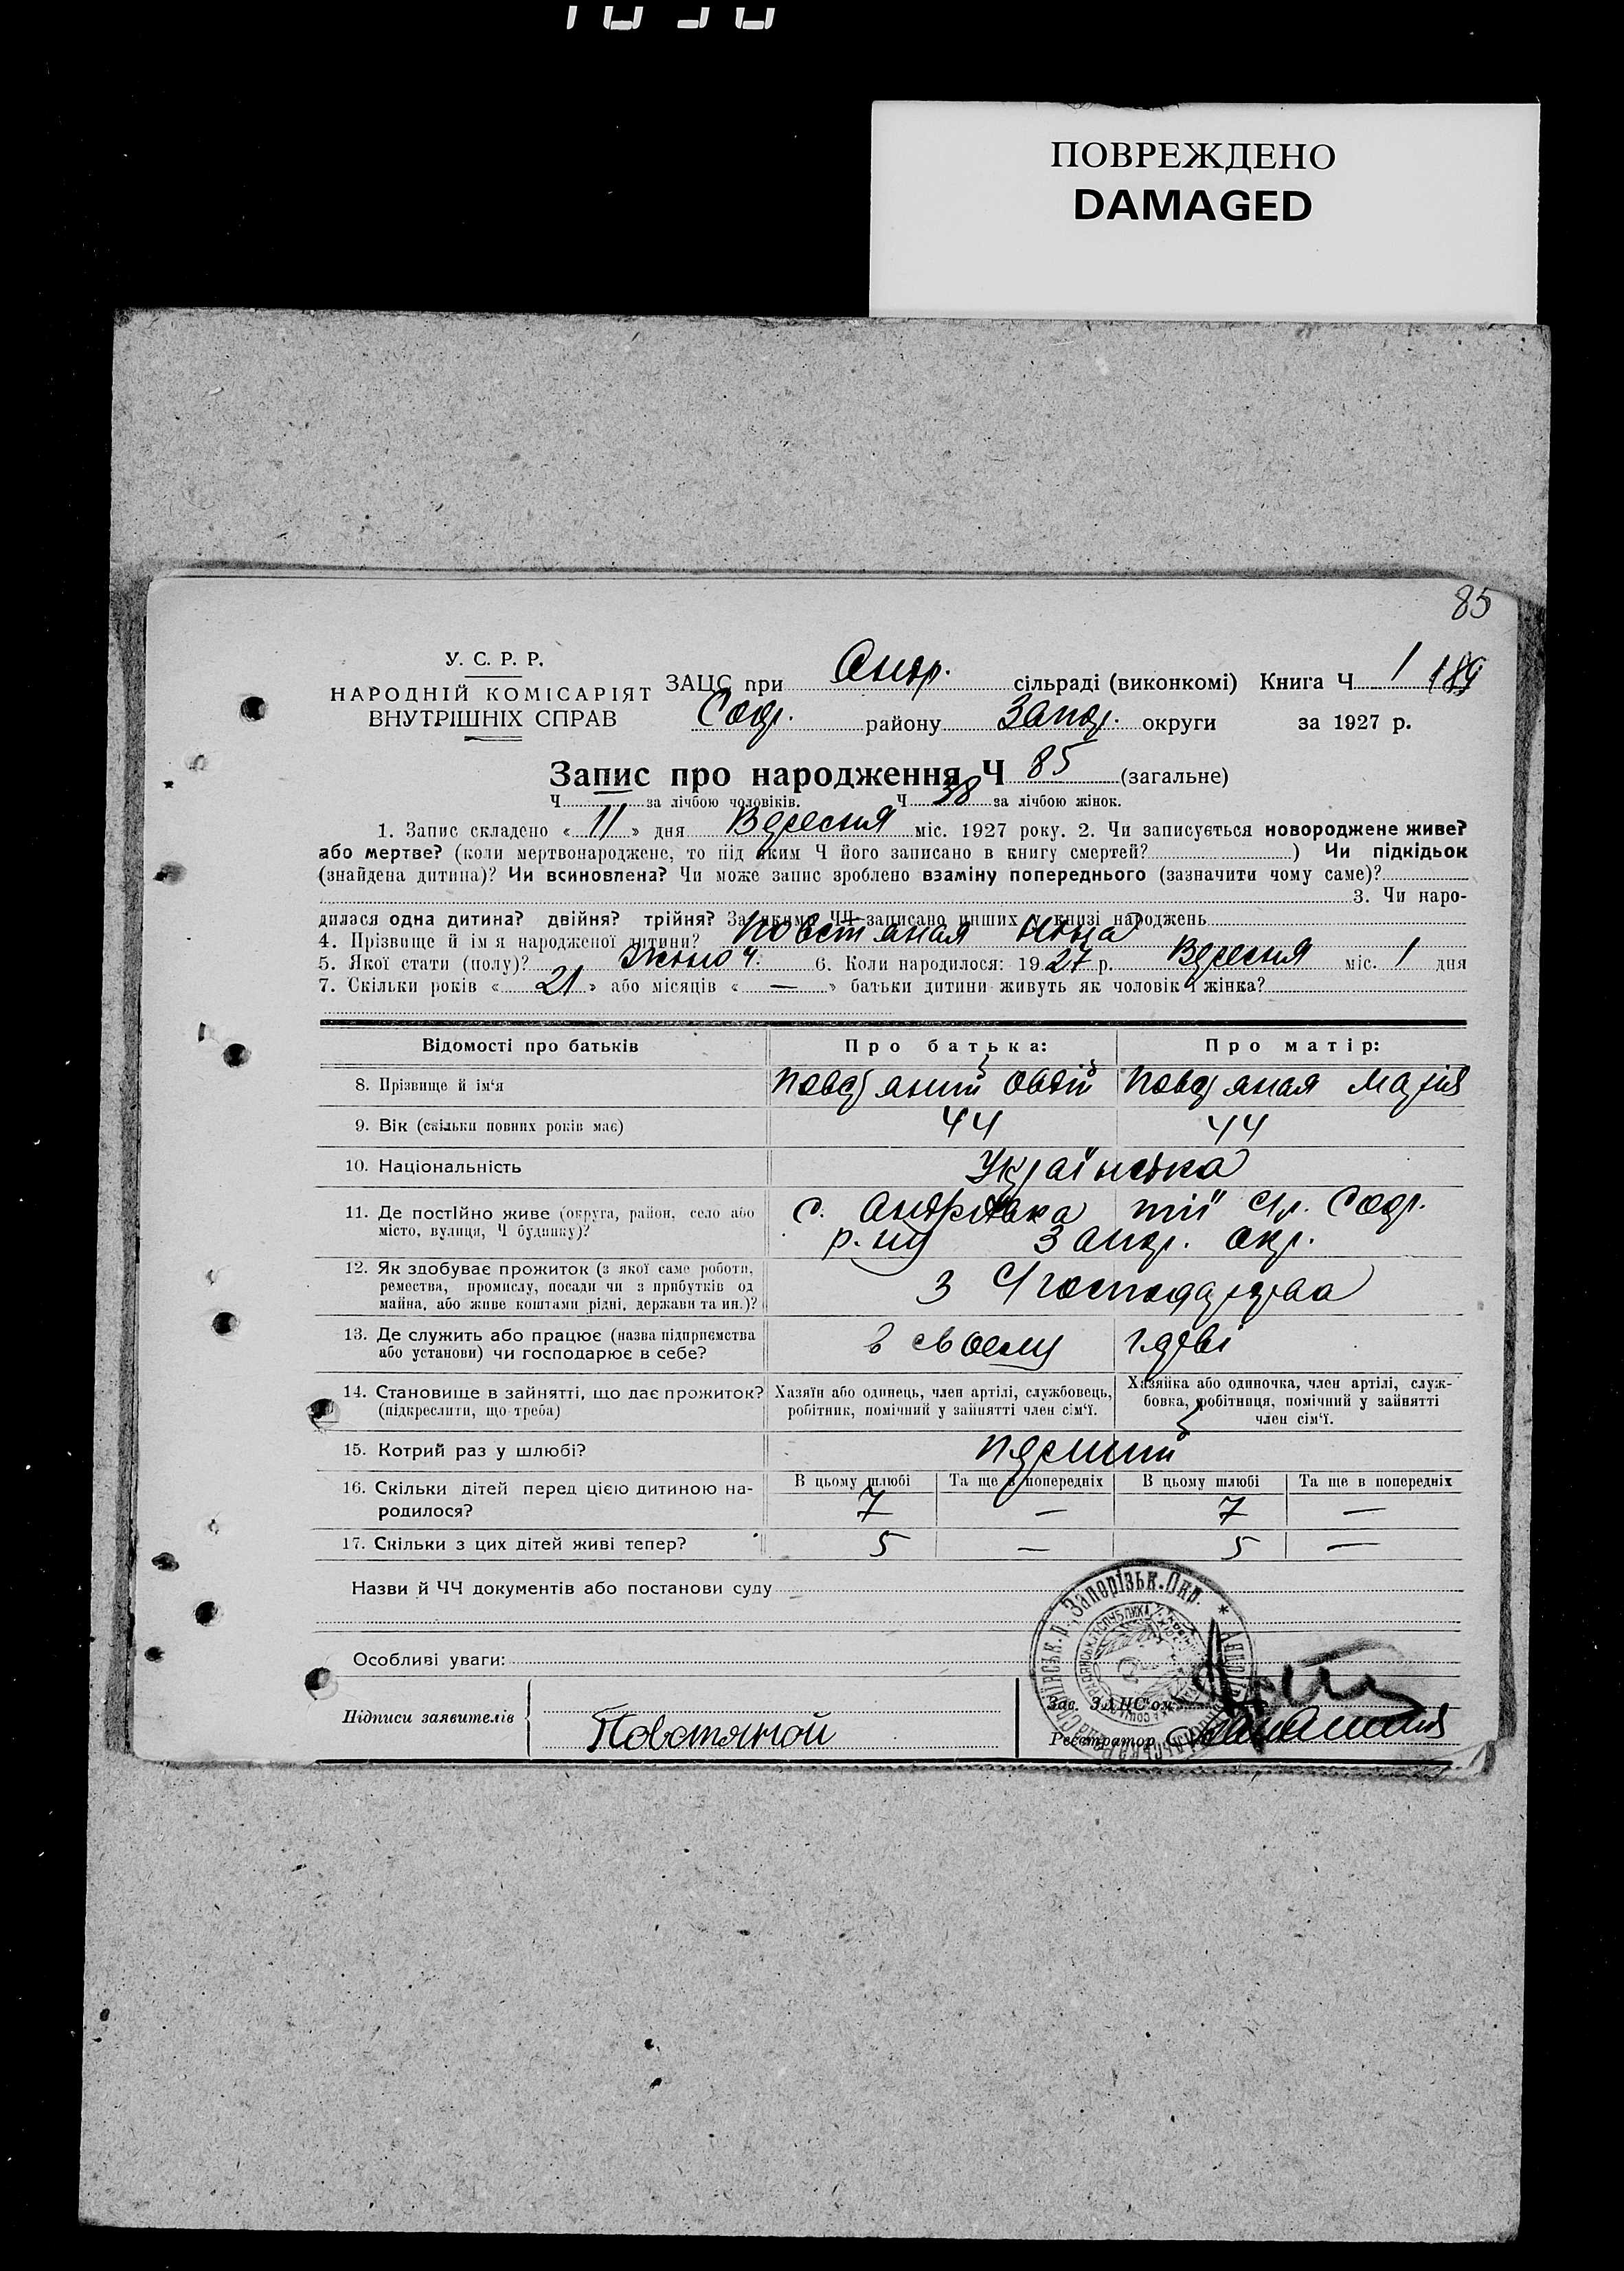 ПОВРЕЖДЕНО
DAMAGED
85
У. С. Р. Р.
НАРОДНІЙ КОМІСАРІЯТ
ВНУТРІШНІХ СПРАВ
ЗАЦС при Андр. сільраді (виконкомі) Книга Ч 1 189
Софі. району Запор. округи за 1927 р.
Запис про народження Ч 85 (загальне)
Ч за лічбою чоловіків. Ч 38 за лічбою жінок.
1. Запис складено « 11 » дня Вересня міс. 1927 року. 2. Чи записується новороджене живе?
або мертве? (коли мертвонароджене, то під яким Ч його записано в книгу смертей? ) Чи підкідьок
(знайдена дитина)? Чи всиновлена? Чи може запис зроблено взаміну попереднього (зазначити чому саме)?
3. Чи наро-
дилася одна дитина? двійня? трійня? За якими ЧЧ записано инших у книзі народжень
4. Прізвище й ім я народженої дитини? Повстяная Нина
5. Якої стати (полу)? Жіноч. 6. Коли народилося: 19 27 р. Вересня міс. 1 дня
7. Скільки років « 21 » або місяців « — » батьки дитини живуть як чоловік і жінка?
Відомості про батьків Про батька: Про матір:
8. Прізвище й ім‘я Повстяний Овдій Повстяная Марія
9. Вік (скільки повних років має) 44 44
10. Національність Українська
11. Де постійно живе (округа, район, село або
місто, вулиця, Ч будинку)?
с. Андріївка тії ж
р-ну Запор. окр.
12. Як здобуває прожиток (з якої саме роботи,
ремества, промислу, посади чи з прибутків од
майна, або живе коштами рідні, держави та ин.)?
З С/господарства
13. Де служить або працює (назва підприємства
або установи) чи господарює в себе?
в своему
14. Становище в зайнятті, що дає прожиток?
(підкреслити, що треба)
Хазяїн або одинець, член артілі, службовець,
робітник, помічний у зайнятті член сім‘ї.
Хазяйка або одиночка, член артілі, служ-
бовка, робітниця, помічний у зайнятті
член сім‘ї.
15. Котрий раз у шлюбі? перший
16. Скільки дітей перед цією дитиною на-
родилося?
В цьому шлюбі Та ще в попередніх В цьому шлюбі Та ще в попередніх
7 — 7 —
17. Скільки з цих дітей живі тепер? 5 — 5 —
Назви й ЧЧ документів або постанови суду
Особливі уваги:
Підписи заявителів Повстяной
Зав. ЗАЦС'ом
Реєстратор
Запорізьк. Окр.